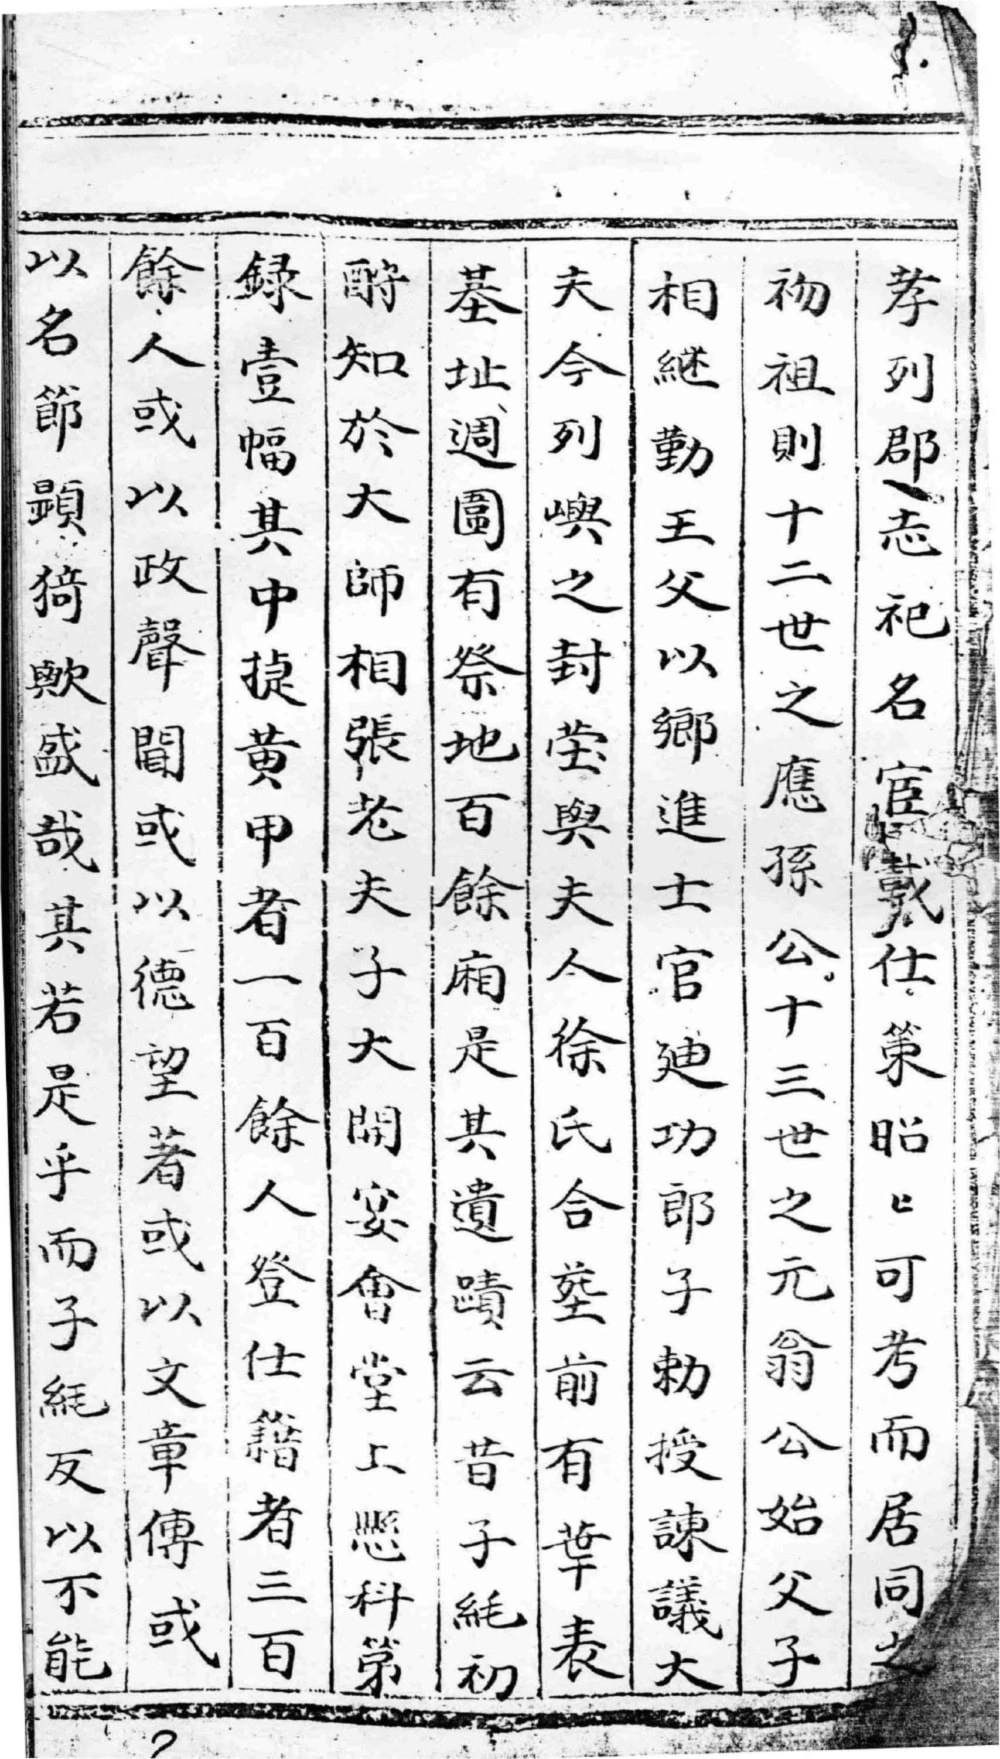 孝列郡志祀名宦戴仕策昭〻可考而居同之
初祖則十二世之應孫公十三世之元翁公始父子
相継勤王父以鄉進士官廸功郎子勅授諫議大
夫今列嶼之封塋與夫人徐氏合塟前有華表
基址週圍有祭地百餘廂是其遺蹟云昔子純初
酹知於大師相張老夫子大開宴會堂上懸科第
録壹幅其中㨗黄甲者一百餘人登仕籍者三百
餘人或以政聲聞或以德望著或以文章傳或
以名節顕猗歟盛哉其若是乎而子純反以不能